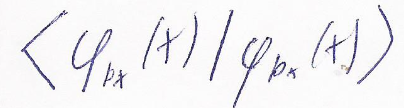 ⟨φ_px(x)|φ_px(x)⟩